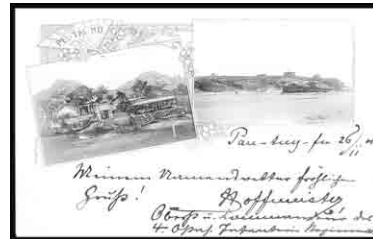 PEI-TAI-HO
Pau-ting-fu 26/11
Meinem Namensvetter fröhlichen
Gruß!
Hoffmeister
Oberst u. Kommandeur des
4. Ostas. Infanterie Regiments